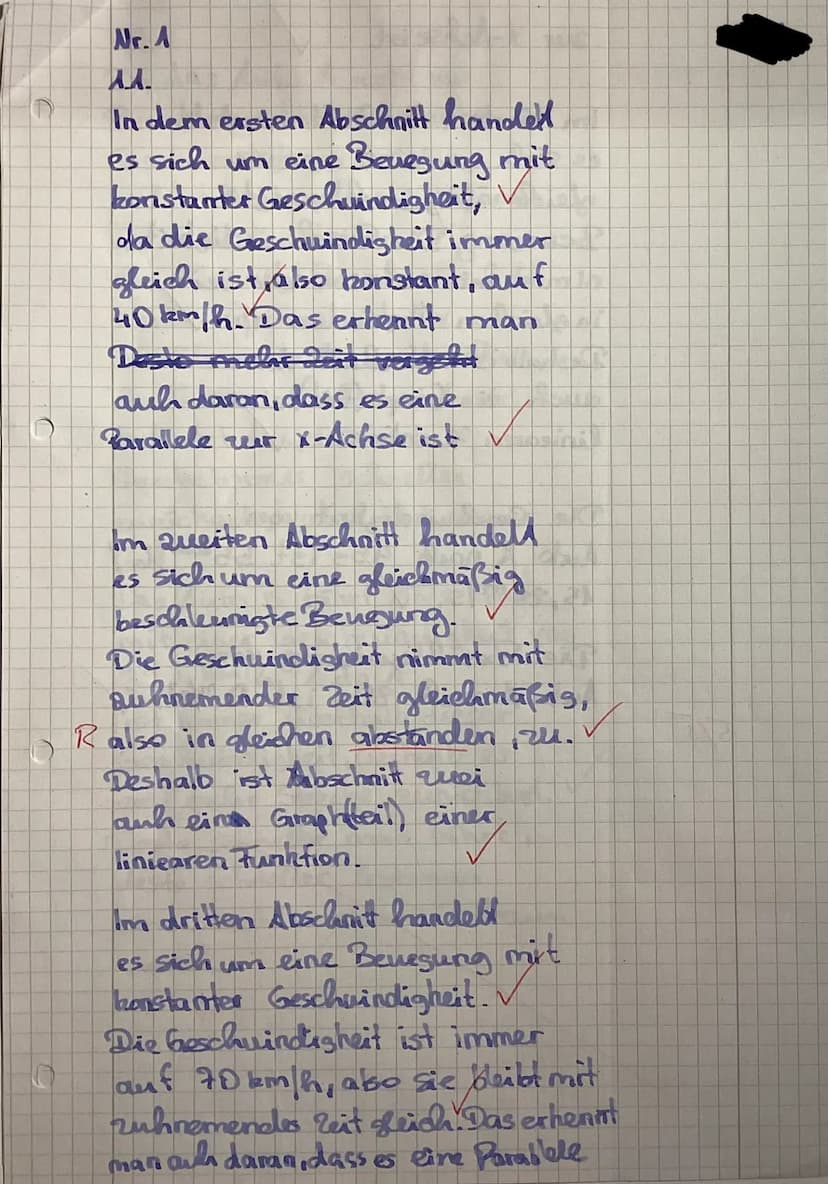 Nr. 1
1.1.
In dem ersten Abschnitt handelt
es sich um eine Bewegung mit
konstanter Geschwindigkeit,
da die Geschwindigkeit immer
gleich ist, also konstant, auf
40 km/h. Das erkennt man
Desto mehr Zeit vergeht
auch daran, dass es eine
Parallele zur x-Achse ist
Im zweiten Abschnitt handelt
es sich um eine gleichmäßig
beschleunigte Bewegung.
Die Geschwindigkeit nimmt mit
zuhnemender Zeit gleichmäßig,
R also in gleichen abständen, zu.
Deshalb ist Abschnitt zwei
auch ein Graph(teil) einer
liniearen Funktion.
Im dritten Abschnitt handelt
es sich um eine Bewegung mit
konstanter Geschwindigkeit.
Die Geschwindigkeit ist immer
auf 70 km/h, also sie bleibt mit
zuhnemendes Zeit gleich. Das erkennt
man auch daran, dass es eine Parallele